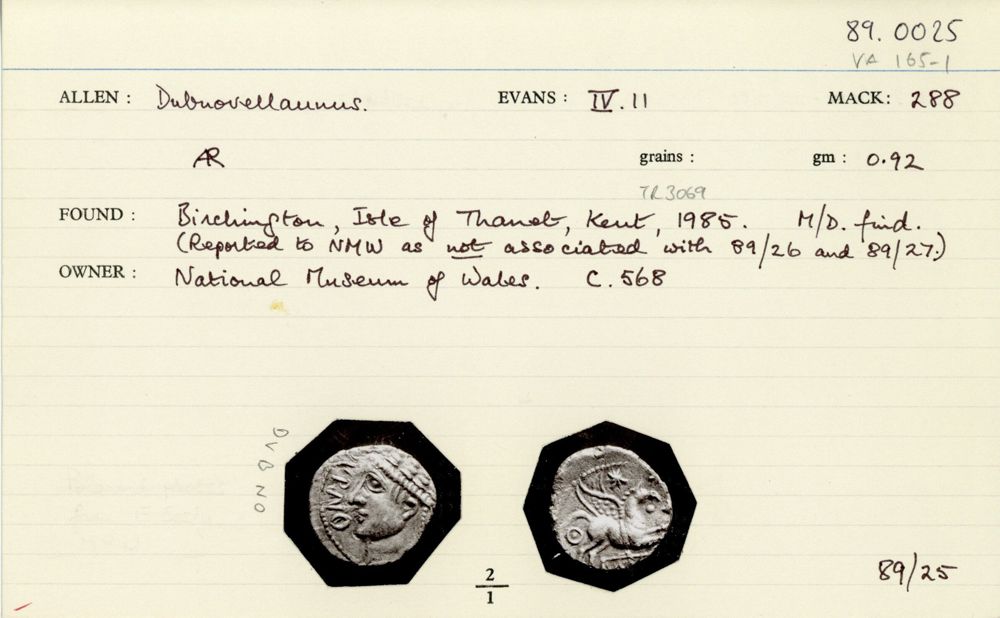 89.0025
VA 165-1
ALLEN : Dubnovellaunus. EVANS : IV.11 MACK: 288
AR grains : gm : 0.92
TR 3069
FOUND : Birchington, Isle of Thanet, Kent, 1985. M/D. find.
(Reported to NMW as not associated with 89/26 and 89/27.)
OWNER : National Museum of Wales. C.568
DVBNO
2
1
89/25